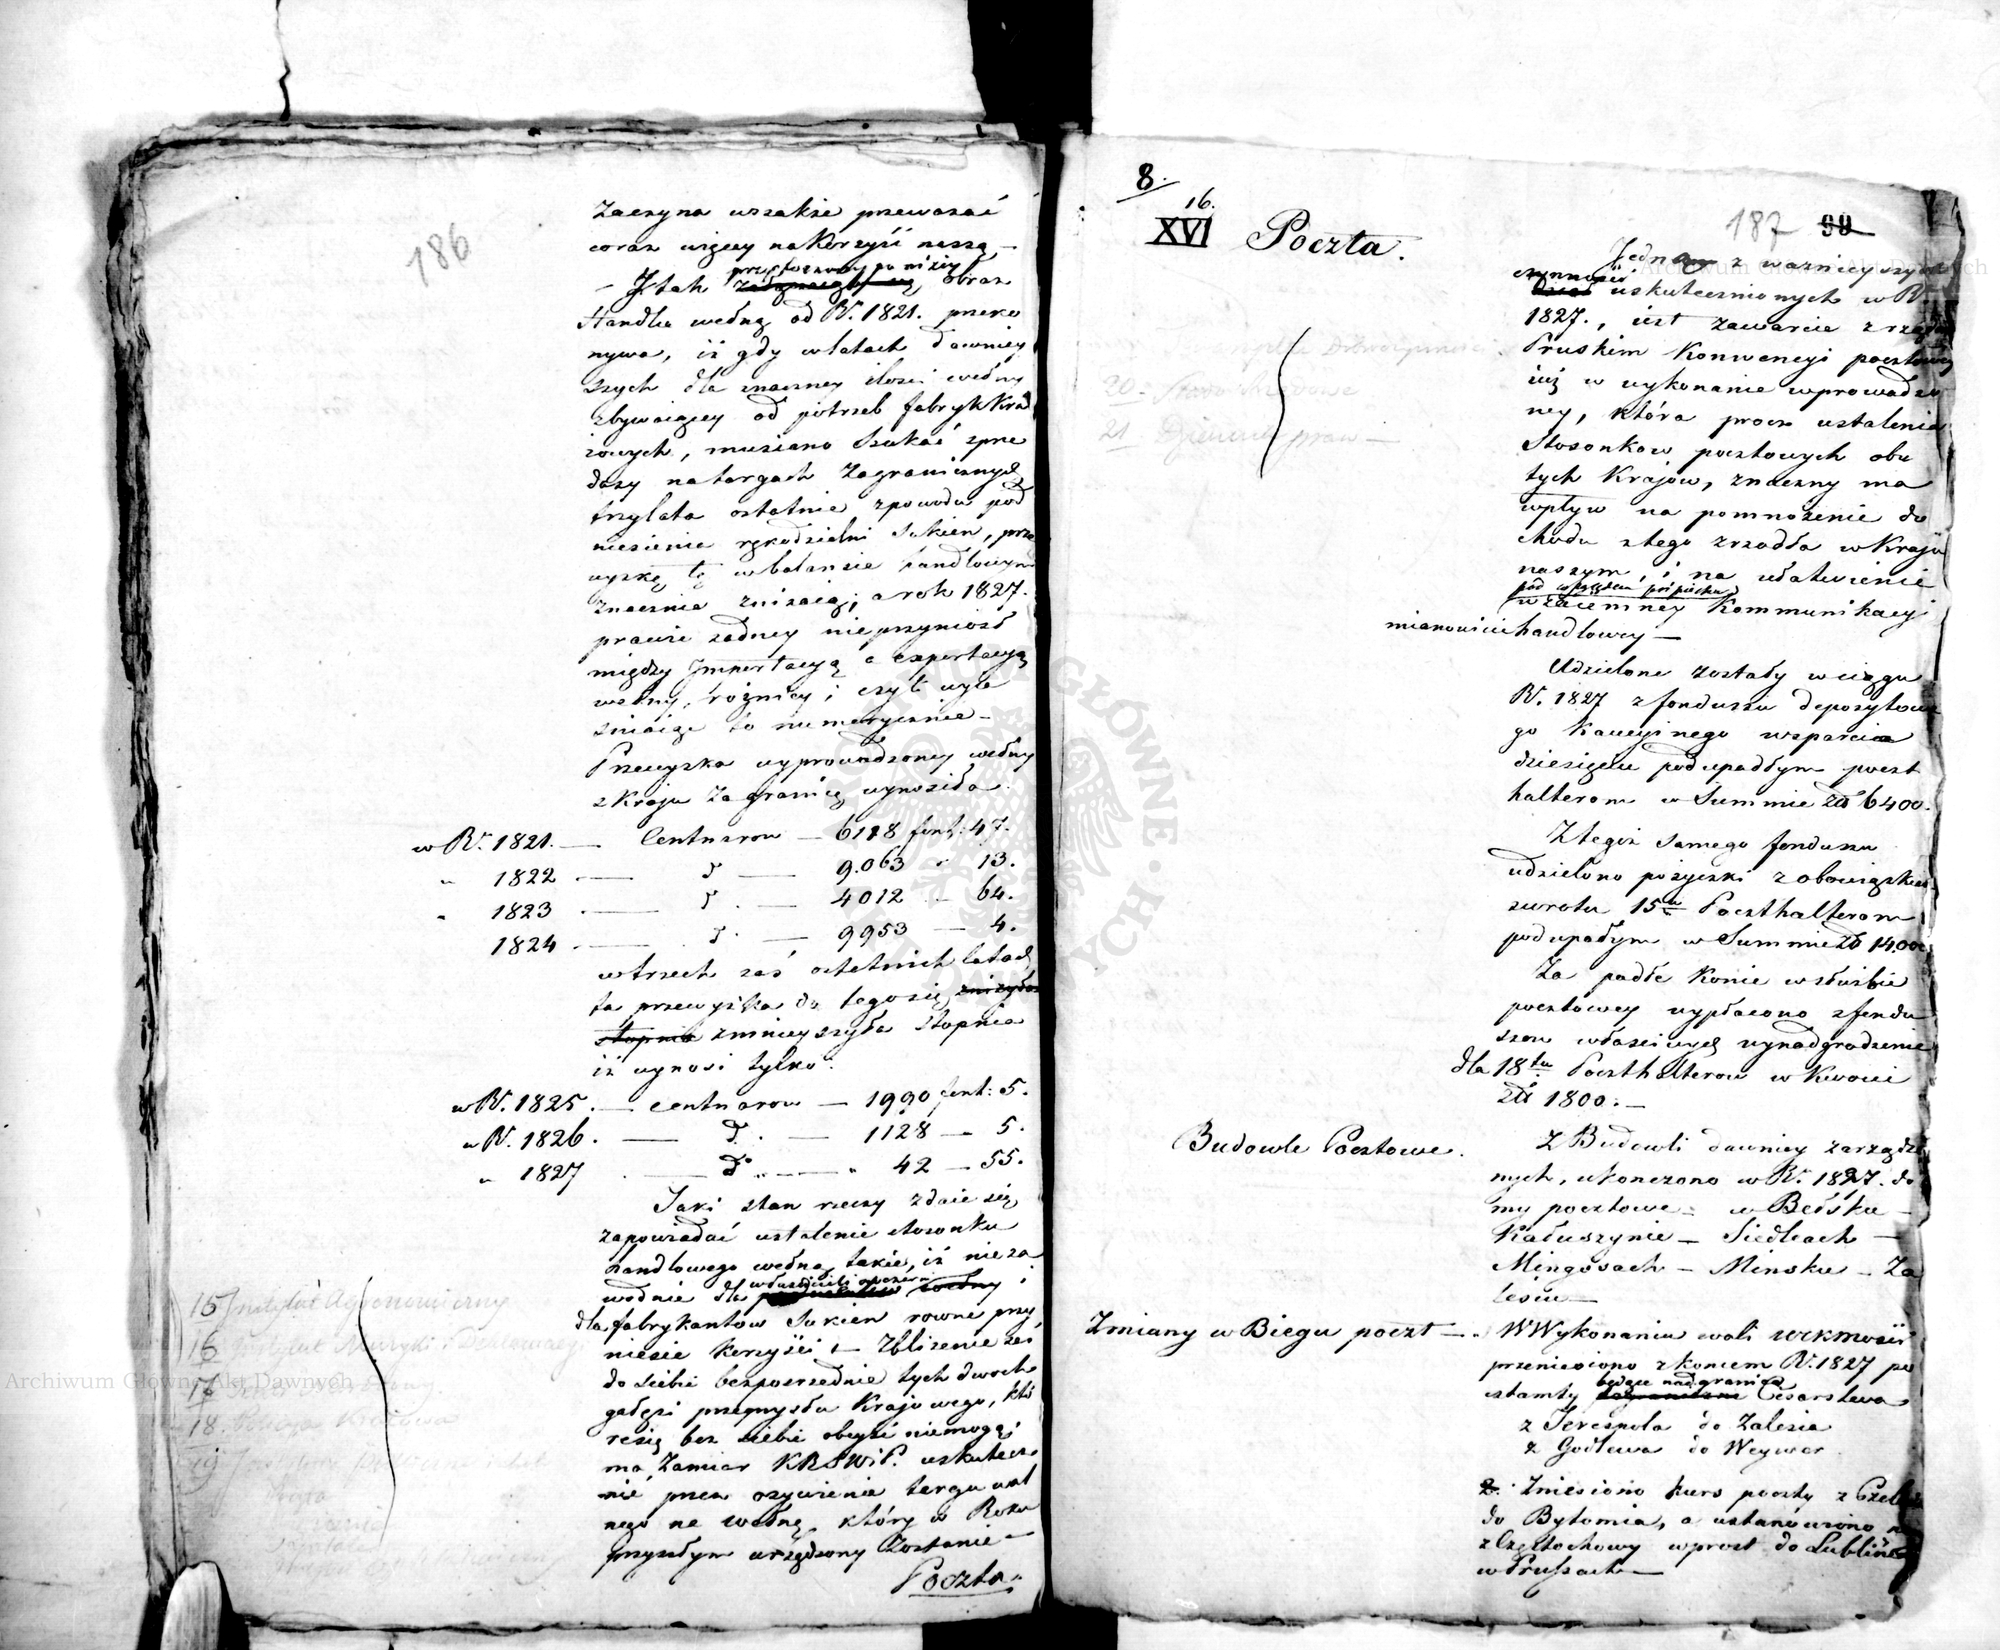 186
Zaczyna wszakże przeważać
coraz więcey na Korzyść naszą –
– I tak przytoczony po niżey obraz
Handlu wełną od R. 1821. przeko
nywa, iż gdy w latach dawniey
szych dla znaczney ilości wełny
zbywaiącey od potrzeb fabryk Kra
iowych, musiano szukać sprze
daży na targach Zagranicznych
trzy lata ostatnie z powodu pod
niesienia rękodzielni Sukien, prze
wyżkę tę w balansie handlowym
znacznie zniżaią; a rok 1827.
prawie żadney nie przyniosł
między Importacyą a exportacyą
wełny, rożnicy i czyli wyia
śniaiąc to numerycznie –
Przewyżka wyprowadzoney wełny
z Kraju Zagranicę wynosiła.
w R. 1821. — Centnarow — 6118 funt: 47.
" 1822 — d — 9.063 " 13.
" 1823 — d — 4012 — 64.
1824 — d — 9953 — 4.
w trzech zaś ostatnich latach
ta przewyżka do tego się zniżyła
stopnia zmnieyszyła stopnia
iż wynosi tylko:
w R. 1825. — centnarow — 1990 funt: 5.
w R. 1826. — d. — 1128 — 5.
" 1827 — d° — 42 — 55.
Taki stan rzeczy zdaie się
zapowiadać ustalenie stosunku
handlowego wełną takie, iż nieza
wodnie dla właścicieli owczarń wełny i
dla fabrykantow Sukien rowne przy
niesie korzyści – Zbliżenie zaś
do siebie bezpośrednie tych dwoch
gałęzi przemysłu Krajowego, któ
re się bez siebie obeyść niemogą
ma Zamiar KRSWiP. uskutecz
nić przez ożywienie targu wal
nego na wełnę, który w Roku
przyszłym urządzony Zostanie –
Poczta.
15 Instytut Agronomiczny
16 Instytut Muzyki i Deklamacyi
17
18.
19
8.
16.
XVI Poczta.
187 99
Jedną z ważnieyszych
czynności uskutecznionych w R.
1827., iest zawarcie z rządem
Pruskim Konwencyi pocztowey
iuż w wykonanie wprowadzo
ney, która procz ustalenia
Stosunkow pocztowych obu
tych Krajów, znaczny ma
wpływ na pomnożenie do
chodu z tego zrzodła w Kraju
naszym, i na ułatwienie
pod względem pośpiechu
wzaiemney Kommunikacyi
mianowicie handlowey —
Udzielone zostały w ciągu
R. 1827 z funduszu depozytowe
go Kaucyinego wsparcia
dziesięciu podupadłym poczt
halterom w Summie Zł 6400.
Z tegoż samego funduszu
udzielono pożyczki z obowiązkiem
zwrotu 15tu Poczthalterom
podupadłym w Summie Zł 14.000
Za padłe Konie w służbie
pocztowey wypłacono z fundu
szow właściwych wynadgrodzenie
dla 18tu Poczthalterow w kwocie
Zł 1800. —
Budowle Pocztowe.
Z Budowli dawniey zarządzo
nych, ukończono w R. 1827. do
my pocztowe – w Bełśku –
Kałuszynie – Siedlcach –
Mingosach – Minsku – Za
lesiu —
Zmiany w Biegu poczt —
W Wykonaniu woli WKMości
przeniesiono z koncem R. 1827 po
cztamty będące nad granicą Cesarstwa
z Terespola do Zalesia
z Godlewa do Weywer.
2. Zniesiono kurs poczty z Czela
do Bytomia, a ustanowiono
z Częstochowy wprost do Lublińca
w Prusach —
20
21 Dziennik praw —